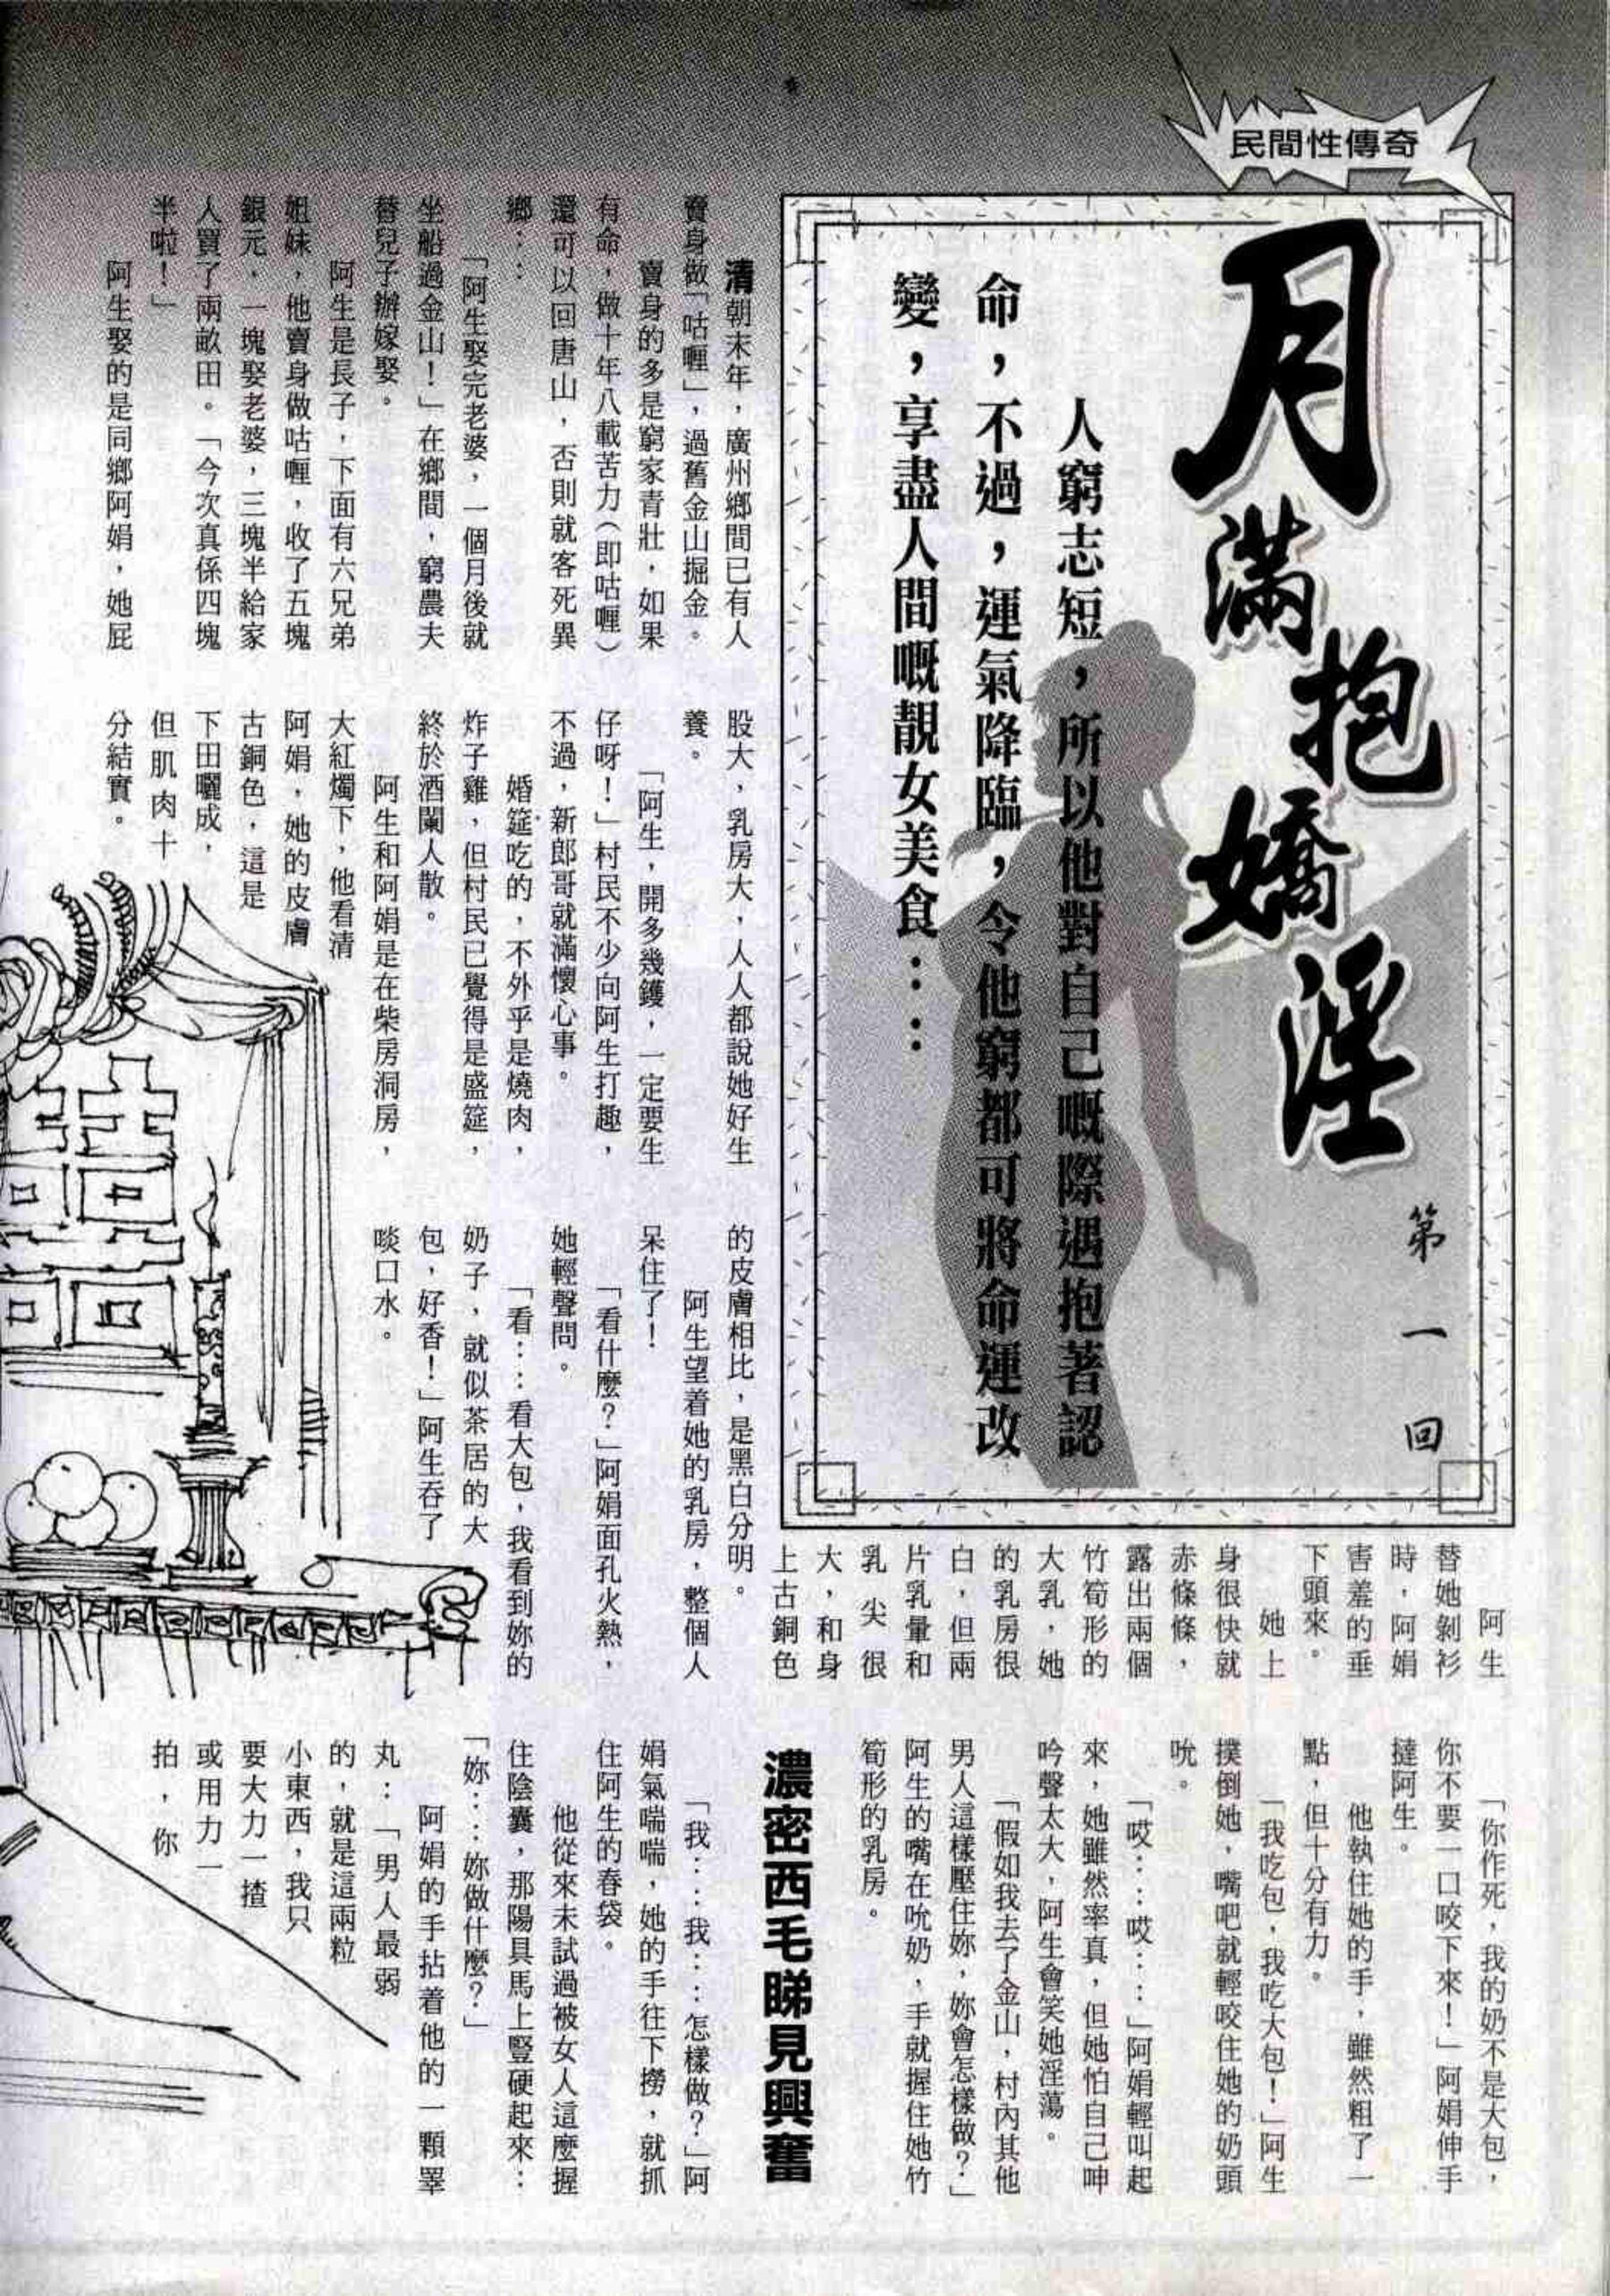 民間性傳奇
月滿抱嬌淫
第一回
人窮志短，所以他對自己嘅際遇抱著認
命，不過，運氣降臨，令他窮都可將命運改
變，享盡人間嘅靚女美食……
清朝末年，廣州鄉間已有人
賣身做「咕喱」，過舊金山掘金。
賣身的多是窮家青壯，如果
有命，做十年八載苦力（即咕喱）
還可以回唐山，否則就客死異
鄉……
「阿生娶完老婆，一個月後就
坐船過金山！」在鄉間，窮農夫
替兒子辦嫁娶。
阿生是長子，下面有六兄弟
姐妹，他賣身做咕喱，收了五塊
銀元，一塊娶老婆，三塊半給家
人買了兩畝田。「今次真係四塊
半啦！」
阿生娶的是同鄉阿娟，她屁
股大，乳房大，人人都說她好生
養。
「阿生，開多幾鑊，一定要生
仔呀！」村民不少向阿生打趣，
不過，新郎哥就滿懷心事。
婚筵吃的，不外乎是燒肉，
炸子雞，但村民已覺得是盛筵，
終於酒闌人散。
阿生和阿娟是在柴房洞房，
大紅燭下，他看清
阿娟，她的皮膚
古銅色，這是
下田曬成，
但肌肉十
分結實。
阿生
替她剝衫
時，阿娟
害羞的垂
下頭來。
她上
身很快就
赤條條，
露出兩個
竹筍形的
大乳，她
的乳房很
白，但兩
片乳暈和
乳尖很
大，和身
上古銅色
的皮膚相比，是黑白分明。
阿生望着她的乳房，整個人
呆住了！
「看什麼？」阿娟面孔火熱，
她輕聲問。
「看……看大包，我看到妳的
奶子，就似茶居的大
包，好香！」阿生吞了
啖口水。
「你作死，我的奶不是大包，
你不要一口咬下來！」阿娟伸手
撻阿生。
他執住她的手，雖然粗了一
點，但十分有力。
「我吃包，我吃大包！」阿生
撲倒她，嘴吧就輕咬住她的奶頭
吮。
「哎……哎……」阿娟輕叫起
來，她雖然率真，但她怕自己呻
吟聲太大，阿生會笑她淫蕩。
「假如我去了金山，村內其他
男人這樣壓住妳，妳會怎樣做？」
阿生的嘴在吮奶，手就握住她竹
筍形的乳房。
濃密西毛睇見興奮
「我……我……怎樣做？」阿
娟氣喘喘，她的手往下撈，就抓
住阿生的春袋。
他從來未試過被女人這麼握
住陰囊，那陽具馬上豎硬起來：
「妳……妳做什麼？」
阿娟的手拈着他的一顆睪
丸：「男人最弱
的，就是這兩粒
小東西，我只
要大力一揸
或用力一
拍，你